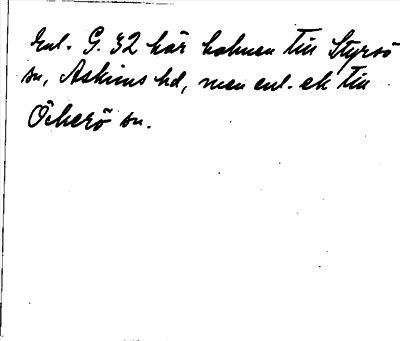 Enl. G. 32 hör holmen till Styrsö
sn, Askims hd, men enl. ek till
Öckerö sn.